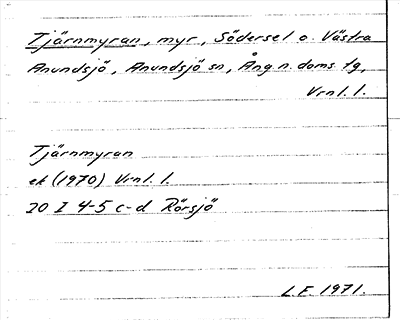 Tjärnmyran, myr, Södersel o. Västra
Anundsjö, Anundsjö sn, Ång. n. doms. tg,
Vrnl. l.
Tjärnmyran
ek (1970) Vrnl. l.
20 I 4-5 c-d Rörsjö
L.F. 1971.